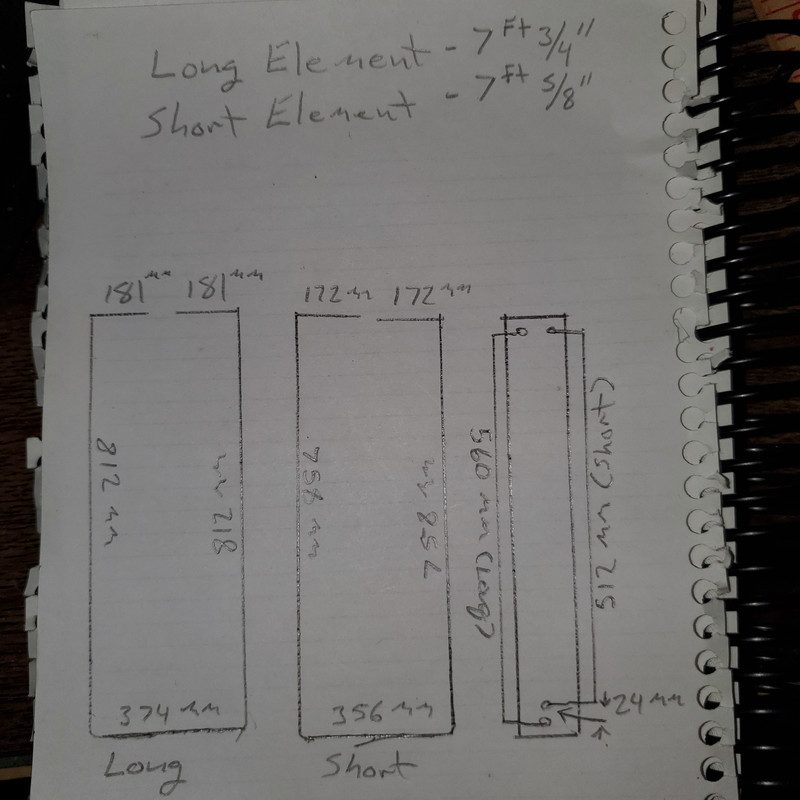 Long Element - 7 Ft 3/4"
Short Element - 7 Ft 5/8"
181 mm 181 mm
122 mm 172 mm
812 mm
812 mm
758 mm
758 mm
560 mm (Long)
512 mm (Short)
374 mm
356 mm
24 mm
Long
Short